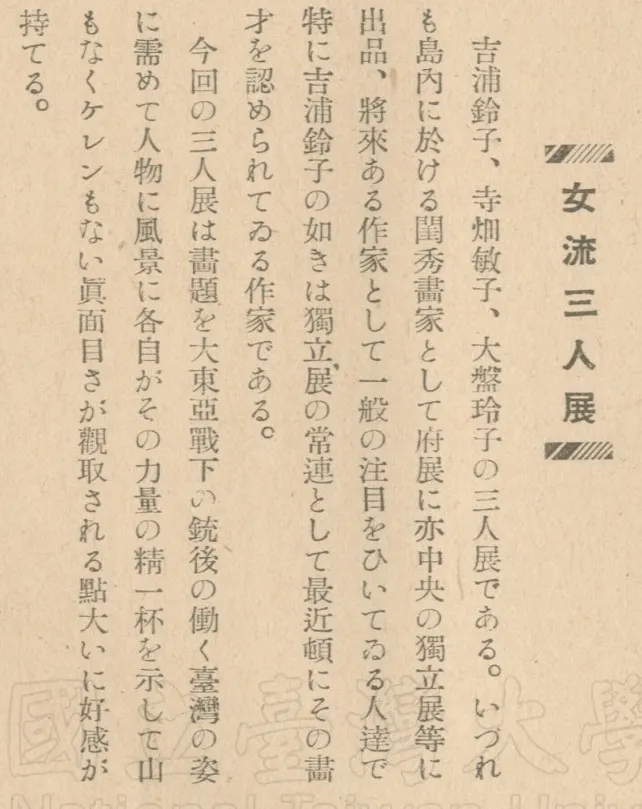 女流三人展
吉浦鈴子、寺畑敏子、大盤玲子の三人展である。いづれ
も島內に於ける閨秀畫家として府展に亦中央の獨立展等に
出品、將來ある作家として一般の注目をひいてゐる人達で
特に吉浦鈴子の如きは獨立展の常連として最近頓にその畵
才を認められてゐる作家である。
今回の三人展は畵題を大東亞戰下の銃後の働く臺灣の姿
に需めて人物に風景に各自がその力量の精一杯を示して山
もなくケレンもない眞面目さが觀取される點大いに好感が
持てる。
國立臺灣大學
National Taiwan Univ